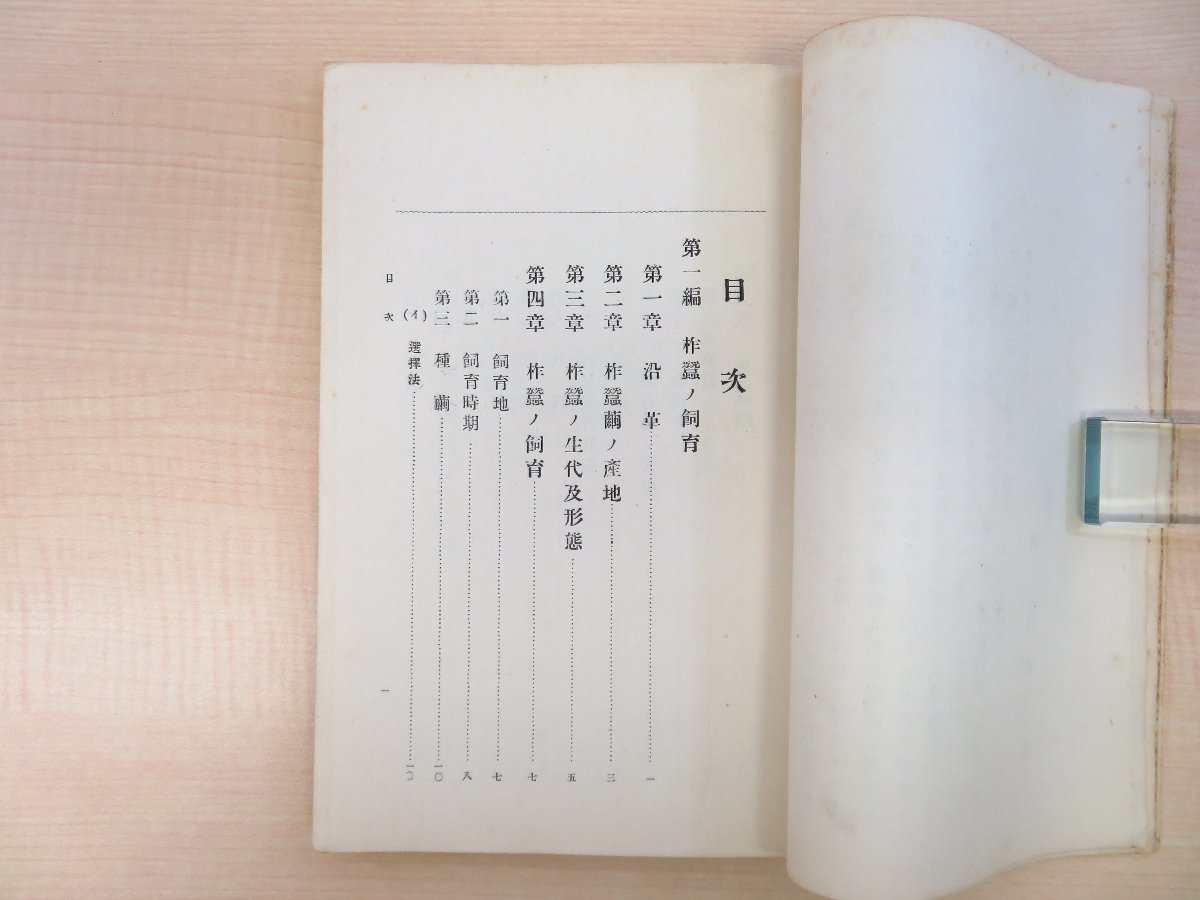 目次
第一編 柞蠶ノ飼育
第一章 沿革……一
第二章 柞蠶繭ノ產地……三
第三章 柞蠶ノ生代及形態……五
第四章 柞蠶ノ飼育……七
第一 飼育地……七
第二 飼育時期……八
第三 種繭……一〇
(イ) 選擇法……一〇
目次
一